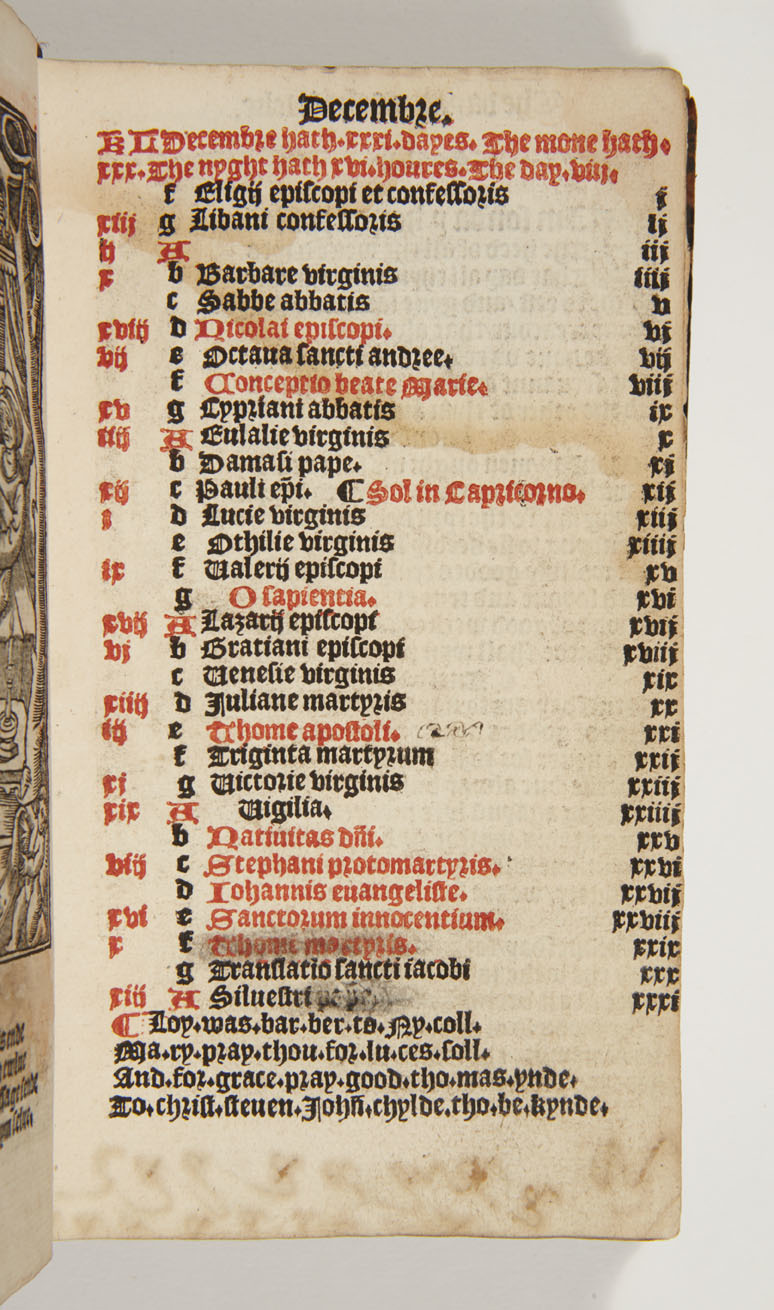 Decembre.
KL Decembre hath.xxxi.dayes. The mone hath.
xxx. The nyght hath xvi.houres. The day.viij.
f Eligij episcopi et confessoris j
xiij g Libani confessoris ij
ij A iij
x b Barbare virginis iiij
c Sabbe abbatis v
xviij d Nicolai episcopi. vj
vij e Octaua sancti andree. vij
f Conceptio beate Marie. viij
xv g Cypriani abbatis ix
iiij A Eulalie virginis x
b Damasi pape. xj
xij c Pauli ep̄i. ¶ Sol in Capricorno. xij
j d Lucie virginis xiij
e Othilie virginis xiiij
ix f Valerij episcopi xv
g O sapientia. xvi
xvij A Lazarij episcopi xvij
vj b Gratiani episcopi xviij
c Venesie virginis xix
xiiij d Juliane martyris xx
iij e Thome apostoli. xxi
f Triginta martyrum xxij
xj g Victorie virginis xxiij
xix A Vigilia. xxiiij
b Natiuitas dn̄i. xxv
viij c Stephani protomartyris. xxvi
d Iohannis euangeliste. xxvij
xvi e Sanctorum innocentium. xxviij
x f Thome martyris. xxix
g Translatio sancti iacobi xxx
xiij A Siluestri xxxi
¶ Loy.was.bar.ber.to.Ny.coll.
Ma.ry.pray.thou.for.lu.ces.soll.
And.for.grace.pray.good.tho.mas.ynde.
To.christ.steuen.Joh̄n.chylde.tho.be.kynde.